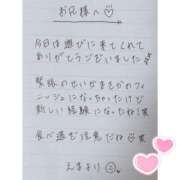 お兄様へ♡
今日は遊びに来てくれて
ありがとうございました
緊張のせいかまさかのフィ
ニッシュになっちゃったけど
新しい経験になったね！笑
食べ過ぎ注意だね♡笑
えまより